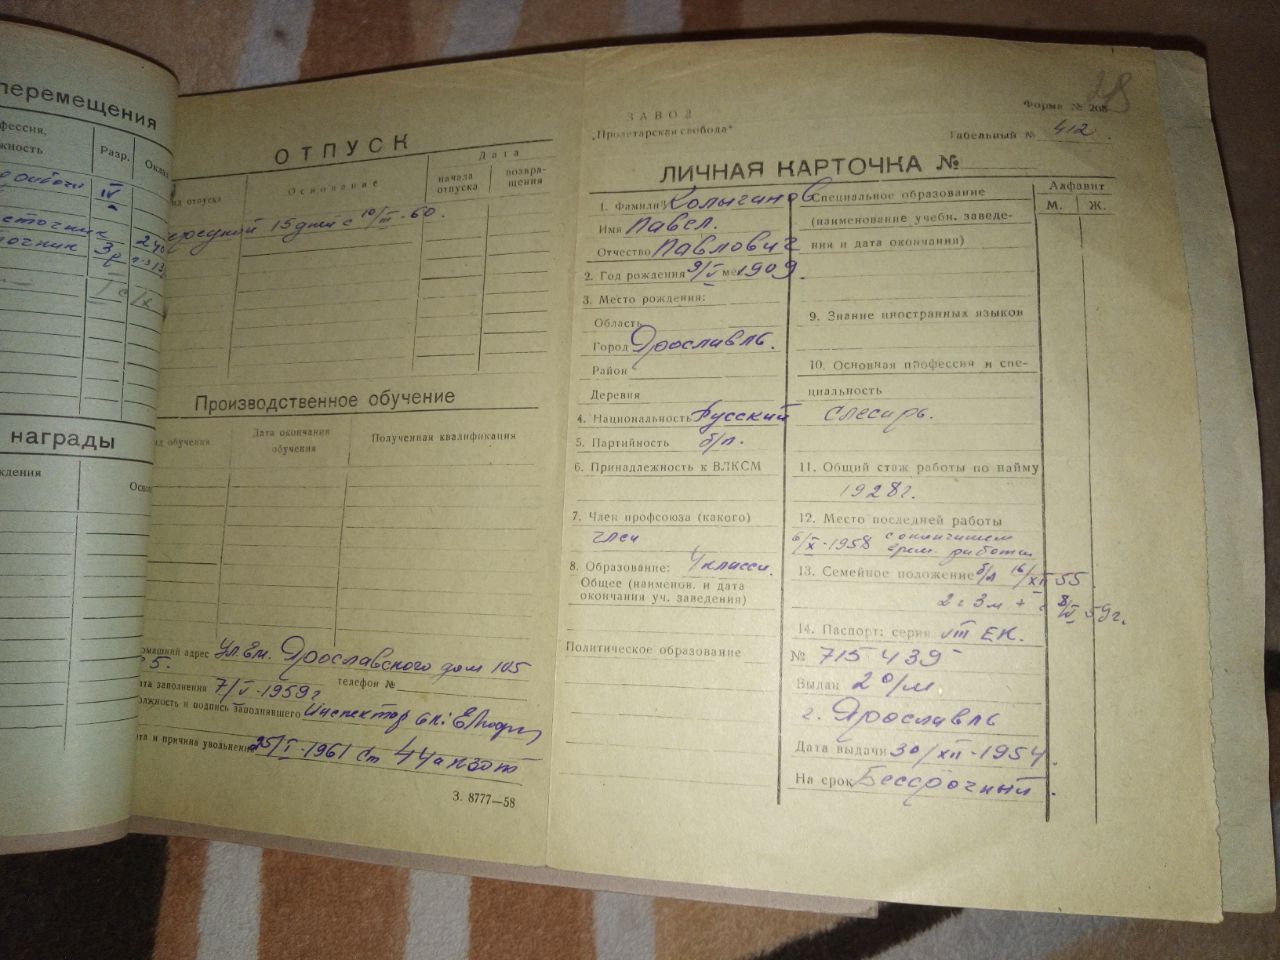 перемещения
фессия,
жность
Разр.
IV
3р
награды
ждения
ОТПУСК
ид отпуска
Основание
Дата
начала отпуска
возвра-
щения
15 дней с 10/III-60.
Производственное обучение
ид обучения
Дата окончания
обучения
Полученная квалификация
омашний адрес Ул. Ем. Ярославского дом 105
5.
ата заполнения 7/V-1959г телефон №
олжность и подпись заполнявшего Инспектор
ата и причина увольнения 25/I-1961 Ст 44а КЗОТ
З. 8777—58
28
ЗАВОД
„Пролетарская свобода“
Форма № 208
Табельный № 412.
ЛИЧНАЯ КАРТОЧКА №
1. Фамилия Колыганов
Имя Павел.
Отчество Павлович
2. Год рождения 9/V ме 1909.
3. Место рождения:
Область
Город Ярославль.
Район
Деревня
4. Национальность Русский
5. Партийность б/п.
6. Принадлежность к ВЛКСМ
7. Член профсоюза (какого)
член
8. Образование: 4 класса.
Общее (наименов. и дата
окончания уч. заведения)
Политическое образование
Специальное образование
(наименование учебн. заведе-
ния и дата окончания)
9. Знание иностранных языков
10. Основная профессия и спе-
циальность
Слесарь.
11. Общий стаж работы по найму
1928г.
12. Место последней работы
6/X-1958 с окончанием
врем. работы
13. Семейное положение б/л 16/XII 55.
2г 3м + с 8/V 59г.
14. Паспорт: серия VIII ЕК.
№ 715439
Выдан 2 о/м.
г. Ярославль
Дата выдачи 30/XII-1954.
На срок Бессрочный.
Алфавит
М. Ж.